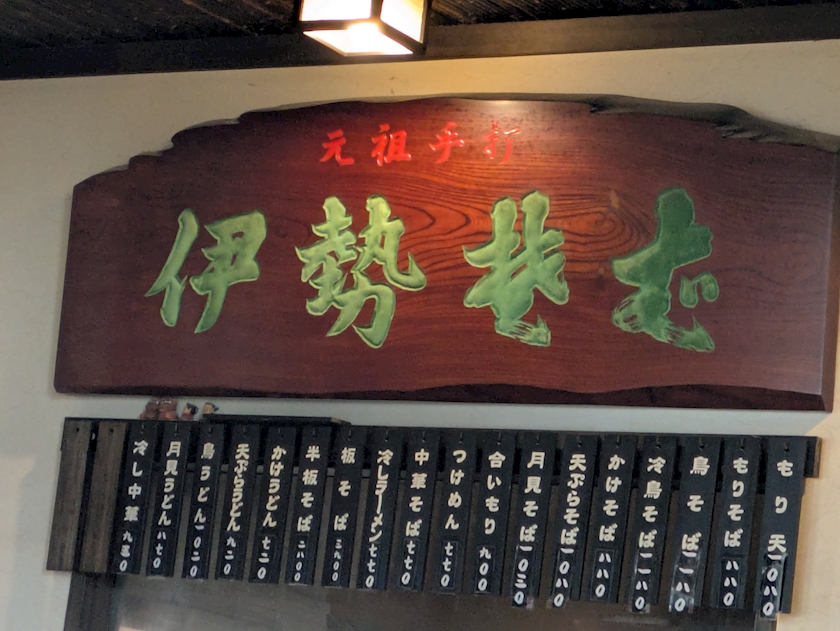 元祖手打
伊勢そば
もり天 一〇八〇
もりそば 八八〇
鳥そば 一一八〇
冷鳥そば 一一八〇
かけそば 八八〇
天ぷらそば 一〇八〇
月見そば 一〇三〇
合いもり 九〇〇
つけめん 七七〇
中華そば 七七〇
冷しラーメン 七七〇
板そば
半板そば
かけうどん 七二〇
天ぷらうどん 九二〇
鳥うどん 一〇二〇
月見うどん 八七〇
冷し中華